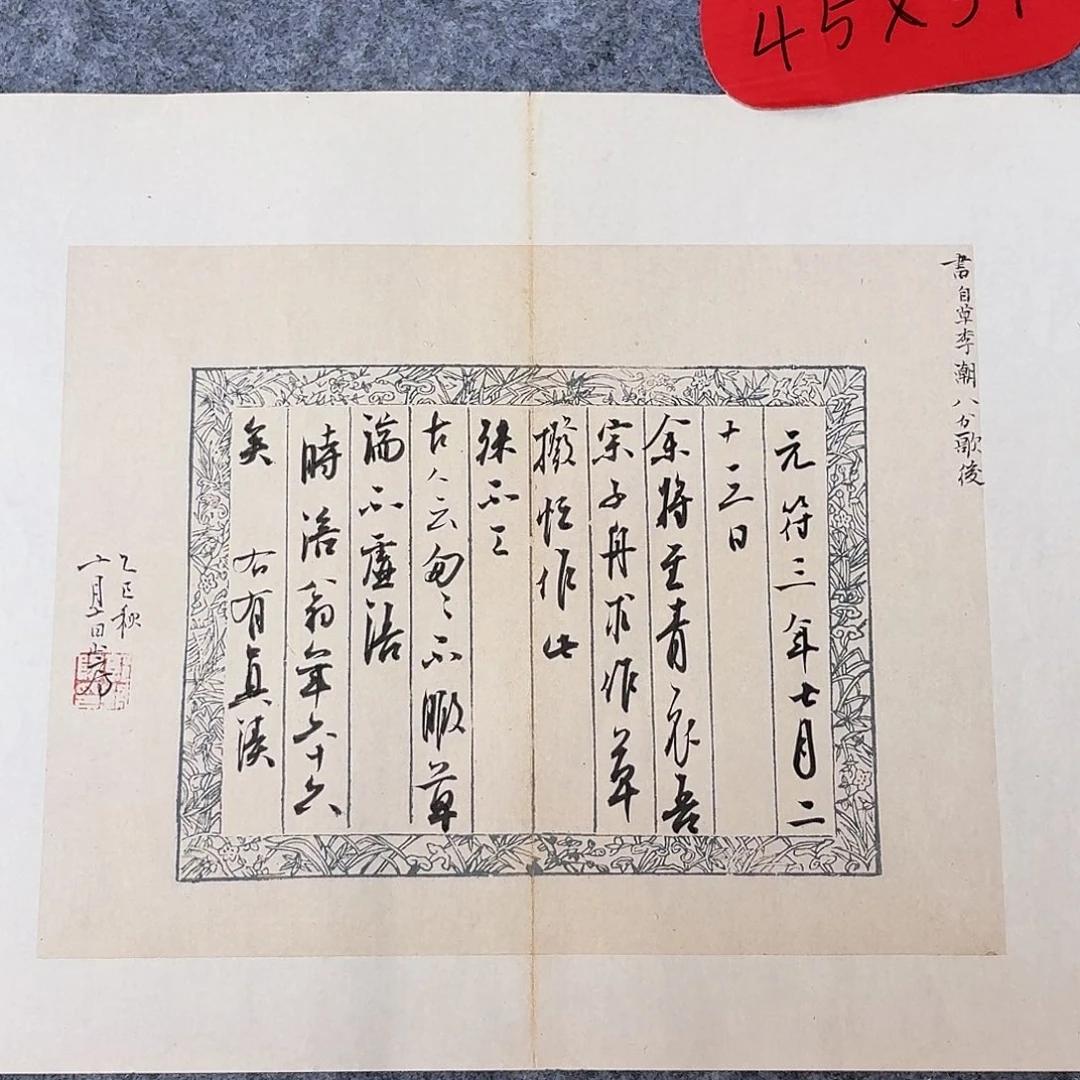 45×
書自草李潮八分歌後
元符三年七月二
十三日
余將至青衣吾
宗子舟求作草
撥忙作此
殊不工
古人云匆々不暇草
端不虛語
時涪翁年六十六
矣 右有真
乙巳秋
十月日